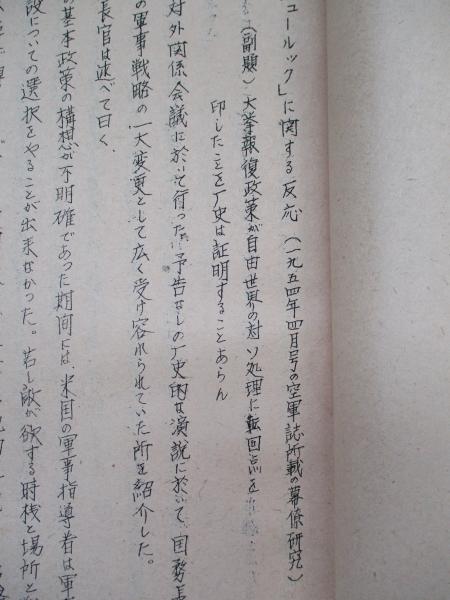 ュールック」に関する反応（一九五四年四月号の空軍誌所載の幕僚研究）
（副題）大挙報復政策が自由世界の対ソ処理に転回点を
印したことを厂史は証明することあらん
対外関係会議に於いて行った予告なしの厂史的な演説に於いて、国務長
の軍事戦略の一大変更として広く受け容れられていた所を紹介した。
長官は述べて曰く、
の基本政策の構想が不明確であった期間には、米国の軍事指導者は軍
設についての選択をやることが出来なかった。若し敵が欲する時機と場所と